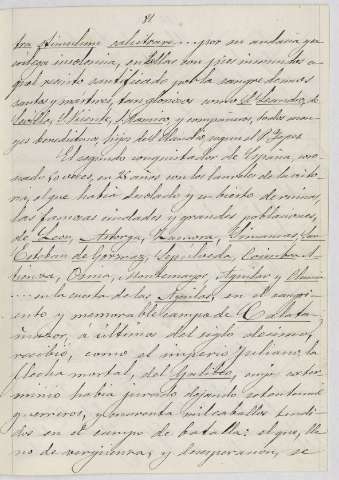 81
tra stimulum calcitrare.... por su audacia y sa-
crílega insolencia, en hollar con pies inmundos a-
quel recinto santificado por la sangre de unos
santos y mártires, tan gloriosos como S. Leandro, de
Sevilla, S. Vicente, S. Ramiro, y compañeros, todos mon-
ges benedictinos, hijos de S. Claudio, segun el P. Yepes.
El segundo conquistador de España, coro-
nado 50 veces, en 25 años con los laureles de la victo-
ria, el que había desolado y cubierto de ruinas,
las famosas ciudades y grandes poblaciones,
de Leon, Astorga, Zamora, Simancas, San
Esteban de Gormaz, Sepulveda, Coimbra, A-
tienza, Osma, Montemayor, Aguilar y
.... en la cuesta de las Aguilas, en el sangri-
ento y memorable campo de Calata-
ñazor, á últimos del siglo décimo,
recibió, como el impío Juliano, la
flecha mortal, del Galileo, cuyo exter-
minio había jurado dejando setenta mil
guerreros, y cuarenta mil caballos tendi-
dos en el campo de batalla: el que, lle-
no de vergüenza, y desesperacion, se